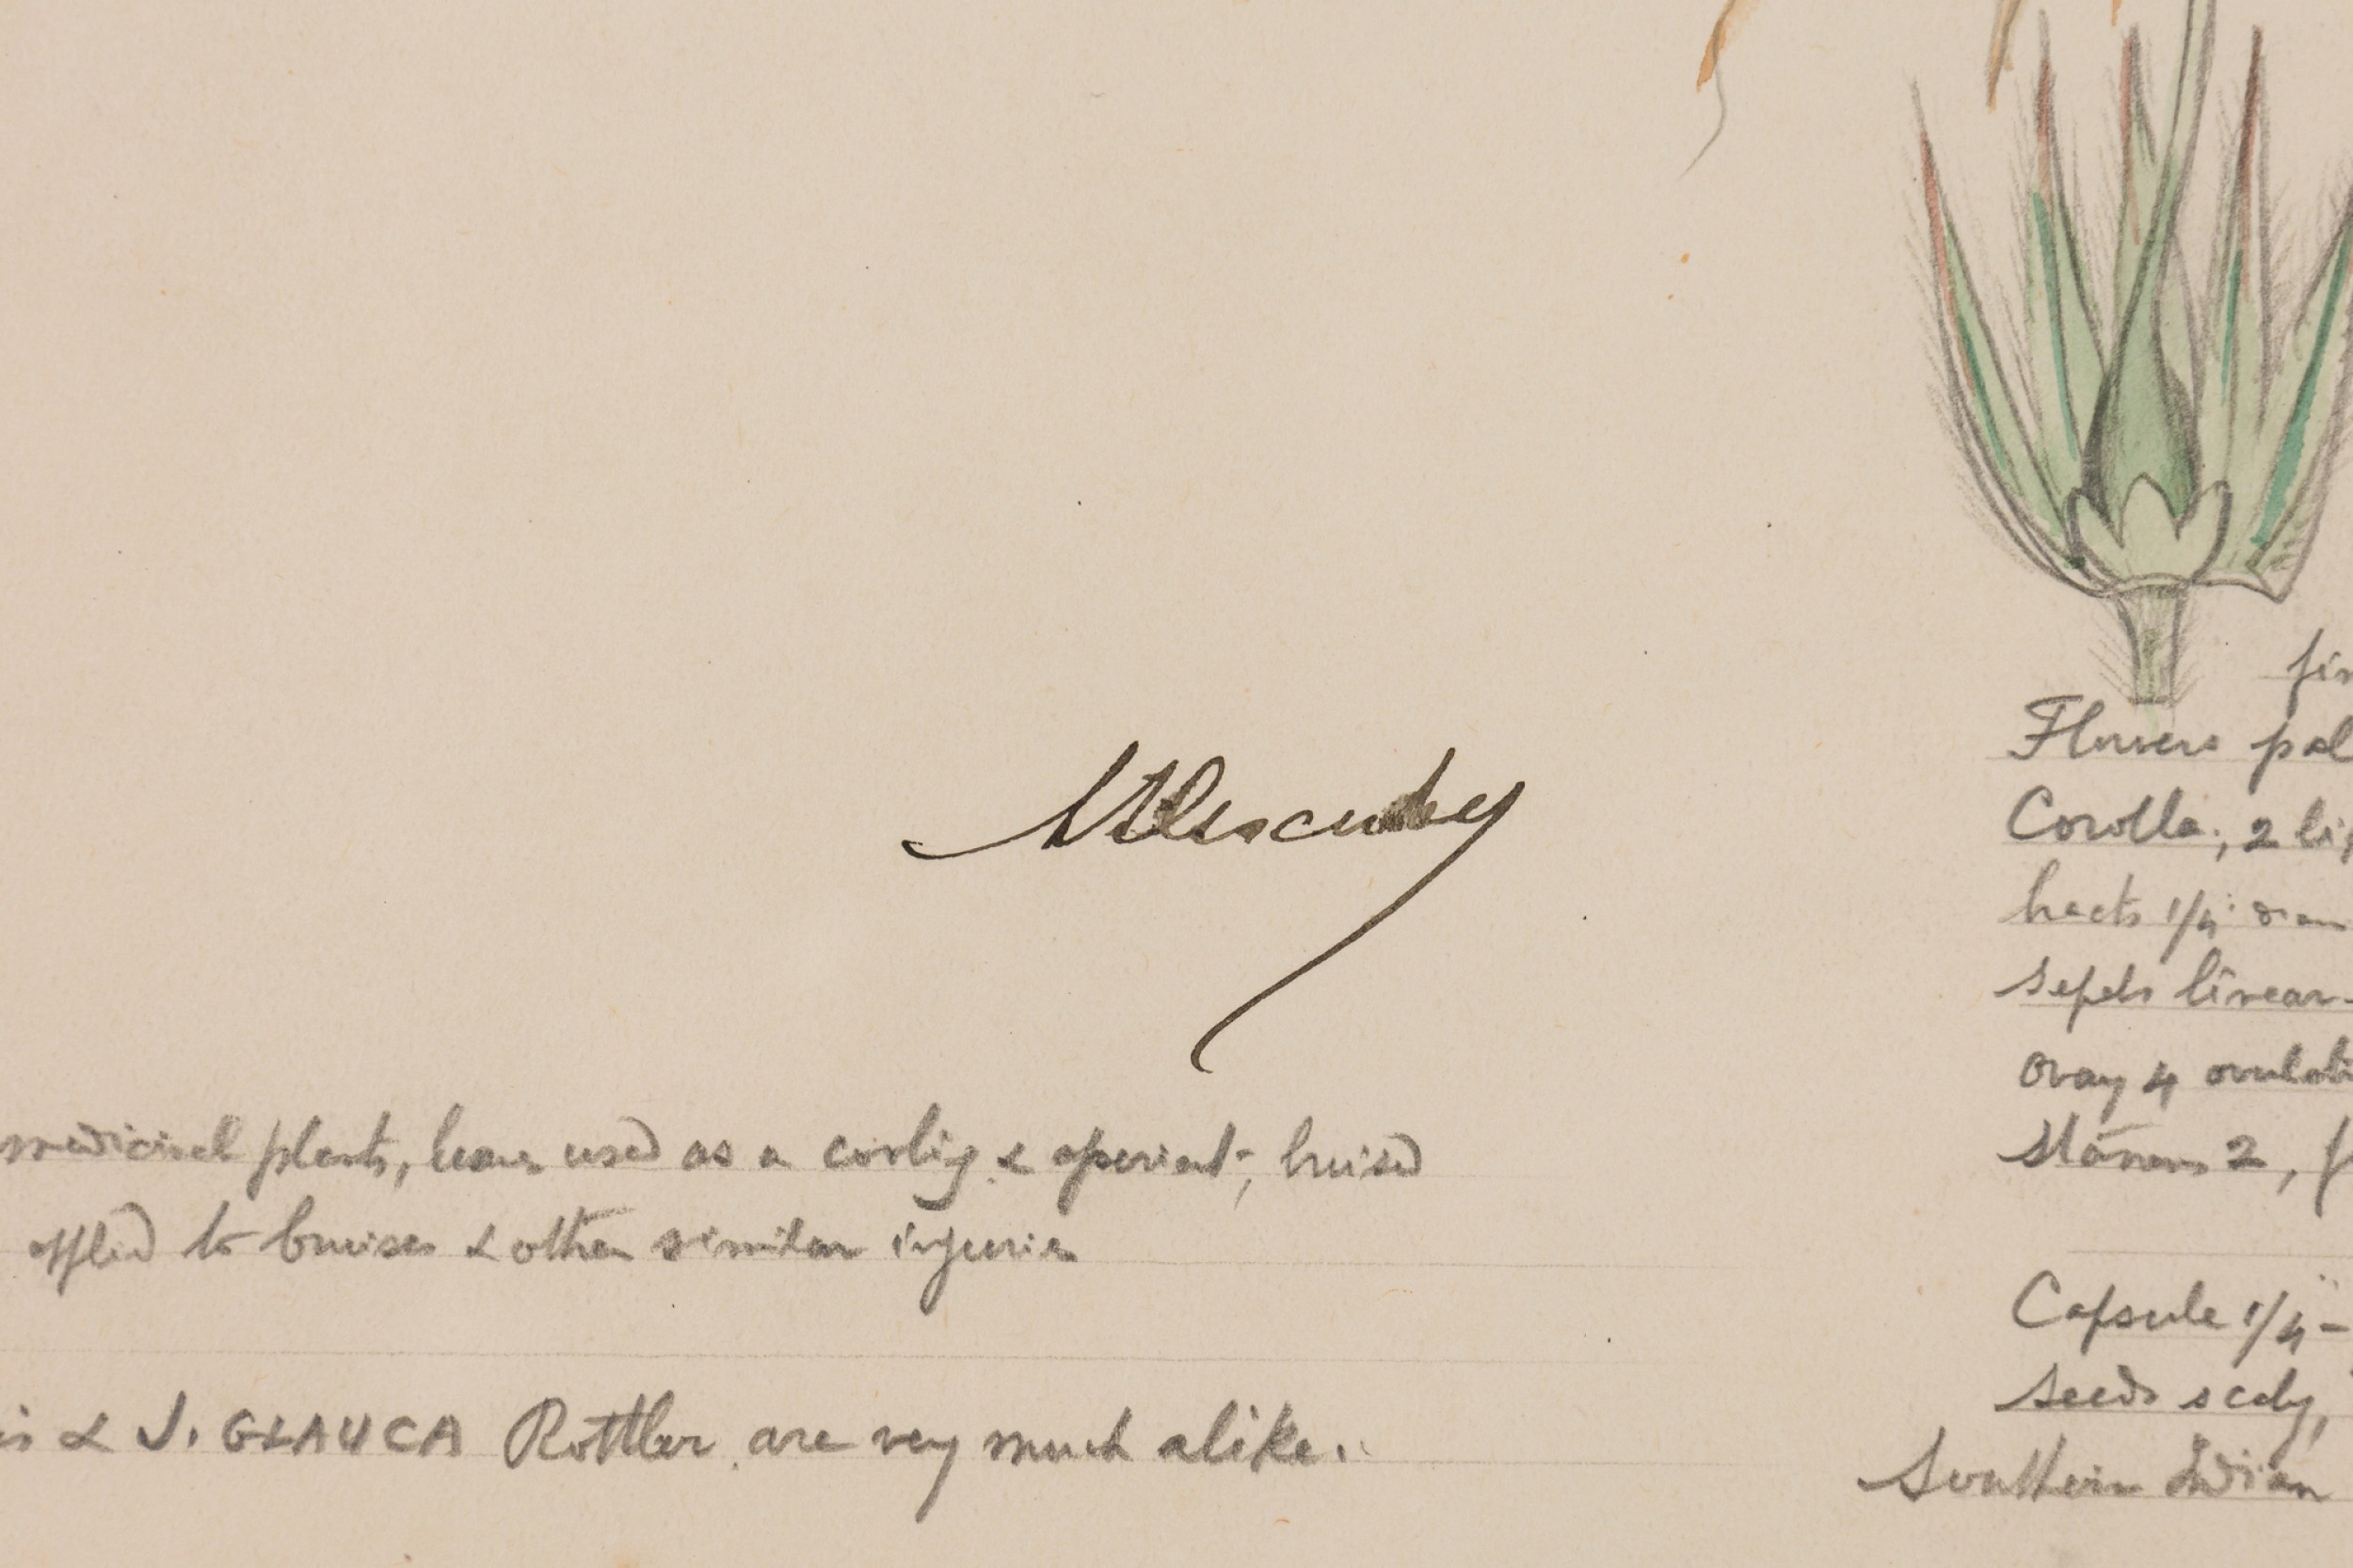 medicinal plants, leaves used as a cooling & aperient; bruised
applied to bruises & other similar injuries
is & J. GLAUCA Rottler are very much alike.
Flowers pal
Corolla; 2 lip
bracts 1/4"
sepals linear-
ovary 4 ovulate
Stamens 2,
Capsule 1/4"-
seeds scaly,
Southern Indian